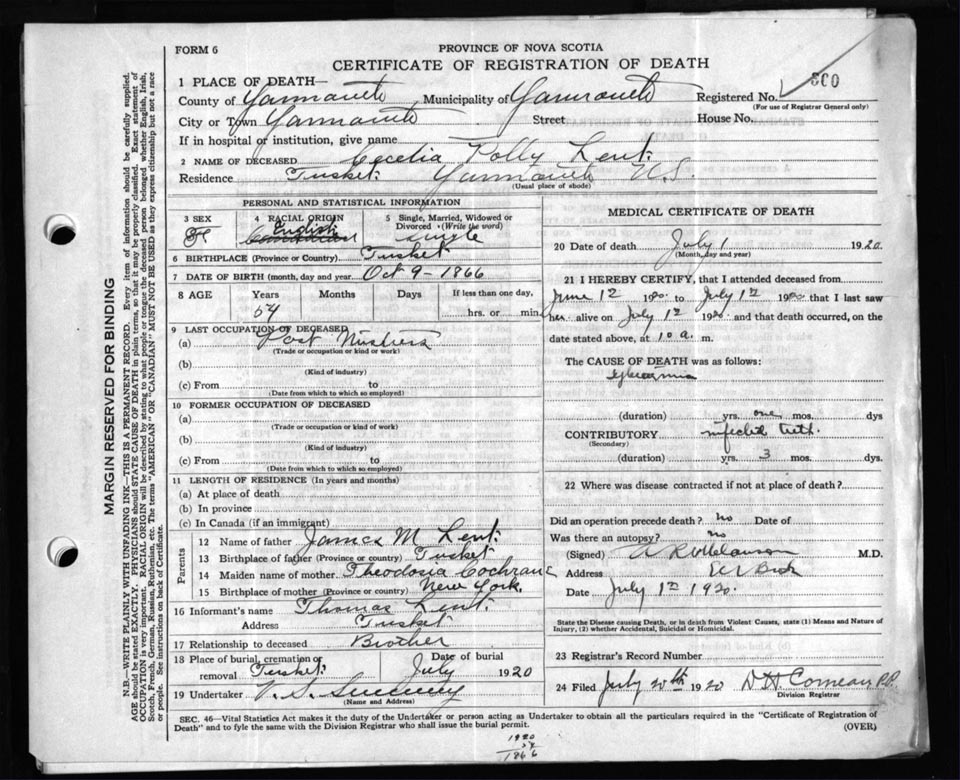 FORM 6
PROVINCE OF NOVA SCOTIA
CERTIFICATE OF REGISTRATION OF DEATH
1 PLACE OF DEATH—
County of Yarmouth Municipality of Yarmouth Registered No. 300
(For use of Registrar General only)
City or Town Yarmouth Street House No.
If in hospital or institution, give name
2 NAME OF DECEASED Cecelia Polly Lent
Residence Tusket Yarmouth N.S.
(Usual place of abode)
PERSONAL AND STATISTICAL INFORMATION
3 SEX
F
4 RACIAL ORIGIN
English
5 Single, Married, Widowed or Divorced (Write the word)
single
6 BIRTHPLACE (Province or Country) Tusket
7 DATE OF BIRTH (month, day and year) Oct 9-1866
8 AGE Years Months Days If less than one day,
54 hrs. or min.
9 LAST OCCUPATION OF DECEASED
(a) Post Mistress
(Trade or occupation or kind or work)
(b)
(Kind of industry)
(c) From to
(Date from which to which so employed)
10 FORMER OCCUPATION OF DECEASED
(a)
(Trade or occupation or kind of work)
(b)
(Kind of industry)
(c) From to
(Date from which to which so employed)
11 LENGTH OF RESIDENCE (In years and months)
(a) At place of death
(b) In province
(c) In Canada (if an immigrant)
Parents
12 Name of father James M Lent
13 Birthplace of father (Province or country) Tusket
14 Maiden name of mother Theodosia Cochrane
15 Birthplace of mother (Province or country) New York
16 Informant's name Thomas Lent
Address Tusket
17 Relationship to deceased Brother
18 Place of burial, cremation or removal Tusket Date of burial July 1920
19 Undertaker V. S. Sweeney
(Name and Address)
MEDICAL CERTIFICATE OF DEATH
20 Date of death July 1 1920
(Month, day and year)
21 I HEREBY CERTIFY, that I attended deceased from
June 12 1920 to July 12 1920 that I last saw
her alive on July 12 1920 and that death occurred, on
date stated above, at 10 a. m.
The CAUSE OF DEATH was as follows:
(duration) yrs. one mos. dys
CONTRIBUTORY infected teeth.
(Secondary)
(duration) yrs. 3 mos. dys.
22 Where was disease contracted if not at place of death?
Did an operation precede death? no Date of
Was there an autopsy? no
(Signed) M.D.
Address
Date July 12 1920.
State the Disease causing Death, or in death from Violent Causes, state (1) Means and Nature of Injury, (2) whether Accidental, Suicidal or Homicidal.
23 Registrar's Record Number
24 Filed July 20th 1920 D H Comeau P.P.
Division Registrar
SEC. 46—Vital Statistics Act makes it the duty of the Undertaker or person acting as Undertaker to obtain all the particulars required in the "Certificate of Registration of
Death" and to fyle the same with the Division Registrar who shall issue the burial permit.
(OVER)
1920
54
1866
MARGIN RESERVED FOR BINDING
N.B.—WRITE PLAINLY WITH UNFADING INK—THIS IS A PERMANENT RECORD. Every item of information should be carefully supplied.
AGE should be stated EXACTLY. PHYSICIANS should STATE CAUSE OF DEATH in plain terms, so that it may be properly classified. Exact statement of
OCCUPATION is very important. RACIAL ORIGIN will be described by stating to what people or tongue the deceased person belonged whether English, Irish,
Scotch, French, German, Russian, Ruthenian, etc. The terms "AMERICAN" OR "CANADIAN" MUST NOT BE USED as they express citizenship but not a race
or people. See instructions on back of Certificate.